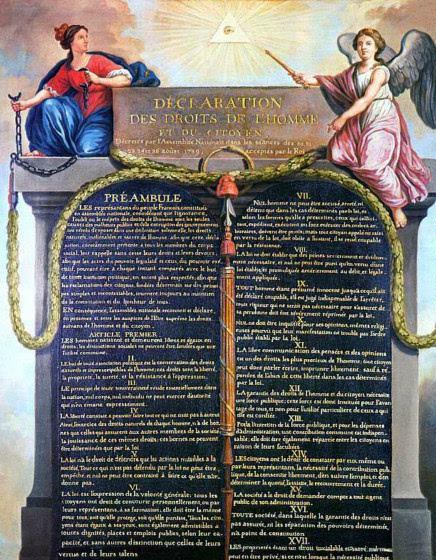 DÉCLARATION
DES DROITS DE L'HOMME
ET DU CITOYEN,
Décrétés par l'Assemblée Nationale dans les séances des 20, 21,
23, 24 et 26 août 1789, acceptés par le Roi
PRÉAMBULE
LES représentans du peuple François, constitués
en assemblée nationale, considérant que l'ignorance,
l'oubli ou le mépris des droits de l'homme sont les seules
causes des malheurs publics et de la corruption des gouvernemens
ont résolu d'exposer dans une déclaration solemnelle, les droits
naturels, inaliénables et sacrés de l'homme: afin que cette déclaration,
constamment présente à tous les membres du corps
social, leur rappelle sans cesse leurs droits et leurs devoirs;
afin que les actes du pouvoir législatif et ceux du pouvoir exécutif,
pouvant être à chaque instant comparés avec le but
de toute institution politique, en soient plus respectés; afin que
les réclamations des citoyens, fondées désormais sur des principes
simples et incontestables, tournent toujours au maintien
de la constitution et du bonheur de tous.
EN conséquence, l'assemblée nationale reconnoît et déclare
en présence et sous les auspices de l'Être suprême les droits
suivans de l'homme et du citoyen.
ARTICLE PREMIER.
LES hommes naissent et demeurent libres et égaux en
droits; les distinctions sociales ne peuvent être fondées que sur
l'utilité commune.
II.
LE but de toute association politique est la conservation des droits
naturels et imprescriptibles de l'homme; ces droits sont la liberté,
la propriété, la sureté, et la résistance à l'oppression.
III.
LE principe de toute souveraineté réside essentiellement dans
la nation, nul corps, nul individu ne peut exercer d'autorité
qui n'en émane expressément.
IV.
LA liberté consiste à pouvoir faire tout ce qui ne nuit pas à autrui
Ainsi, l'exercice des droits naturels de chaque homme, n'a de bornes
que celles qui assurent aux autres membres de la société
la jouissance de ces mêmes droits; ces bornes ne peuvent
être déterminées que par la loi.
V.
LA loi n'a le droit de défendre que les actions nuisibles à la
société. Tout ce qui n'est pas défendu par la loi ne peut être
empêché, et nul ne peut être contraint à faire ce qu'elle n'ordonne
pas.
VI.
LA loi est l'expression de la volonté générale; tous les
citoyens ont droit de concourir personnellement, ou par
leurs représentans, à sa formation; elle doit être la même
pour tous, soit qu'elle protège, soit qu'elle punisse. Tous les citoyens
étant égaux à ses yeux, sont également admissibles à
toutes dignités, places et emplois publics, selon leur capacité,
et sans autres distinctions que celles de leurs
vertus et de leurs talens
VII.
NUL homme ne peut être accusé, arrêté, ni
détenu que dans les cas déterminés par la loi, et
selon les formes qu'elle a prescrites, ceux qui sollicitent,
expédient, exécutent ou font exécuter des ordres arbitraires,
doivent être punis; mais tout citoyen appelé ou saisi
en vertu de la loi, doit obéir à l'instant, il se rend coupable
par la résistance.
VIII.
LA loi ne doit établir que des peines strictement et évidemment
nécessaires, et nul ne peut être puni qu'en vertu d'une
loi établie et promulguée antérieurement au délit, et légalement
appliquée.
IX.
TOUT homme étant présumé innocent jusqu'à ce qu'il ait
été déclaré coupable, s'il est jugé indispensable de l'arrêter,
toute rigueur qui ne seroit pas nécessaire pour s'assurer de
sa personne doit être sévèrement réprimée par la loi.
X.
NUL ne doit être inquiété pour ses opinions, mêmes religieuses
pourvu que leur manifestation ne trouble pas l'ordre
public établi par la loi.
XI.
LA libre communication des pensées et des opinions
est un des droits les plus précieux de l'homme; tout citoyen
peut donc parler, écrire, imprimer librement, sauf à répondre
de l'abus de cette liberté dans les cas déterminés
par la loi.
XII.
LA garantie des droits de l'homme et du citoyen nécessite
une force publique; cette force est donc instituée pour l'avantage
de tous, et non pour l'utilité particulière de ceux à qui
elle est confiée.
XIII.
POUR l'entretien de la force publique, et pour les dépenses
d'administration, une contribution commune est indispensable;
elle doit être également répartie entre les citoyens en
raison de leurs facultés.
XIV.
LES citoyens ont le droit de constater par eux même ou
par leurs représentans, la nécessité de la contribution publique,
de la consentir librement, d'en suivre l'emploi, et d'en
déterminer la quotité, l'assiette, le recouvrement et la durée.
XV.
LA société a le droit de demander compte à tout agent
public de son administration.
XVI.
TOUTE société, dans laquelle la garantie des droits n'est
pas assurée, ni la séparation des pouvoirs déterminée,
n'a point de constitution
XVII.
LES propriétés étant un droit inviolable et sacré, nul
peut en être privé, si ce n'est lorsque la nécessité publique